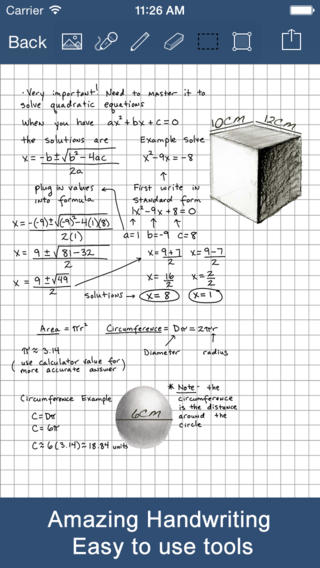 Carrier 11:26 AM
Back
· Very important! Need to master it to
solve quadratic equations
When you have ax² + bx + c = 0
10cm 12cm
the solutions are
x = -b ± √b² - 4ac
2a
Example Solve
x² - 9x = -8
Plug in values
into formula
First write in
Standard form
1x² - 9x + 8 = 0
a=1 b=-9 c=8
x = -(-9) ± √(-9)² - 4(1)(8)
2(1)
x = 9 ± √81 - 32
2
x = 9 ± √49
2
x = 9+7
2
x = 9-7
2
x = 16
2
x = 2
2
solutions → x = 8 x = 1
Area = πr² Circumference = Dπ = 2πr
Diameter radius
π ≈ 3.14
( use calculator value for
more accurate answer )
Circumference Example
C = Dπ
C = 6π
C ≈ 6(3.14) ≈ 18.84 units
6cm
* Note - the
circumference
is the distance
around the
circle
Amazing Handwriting
Easy to use tools